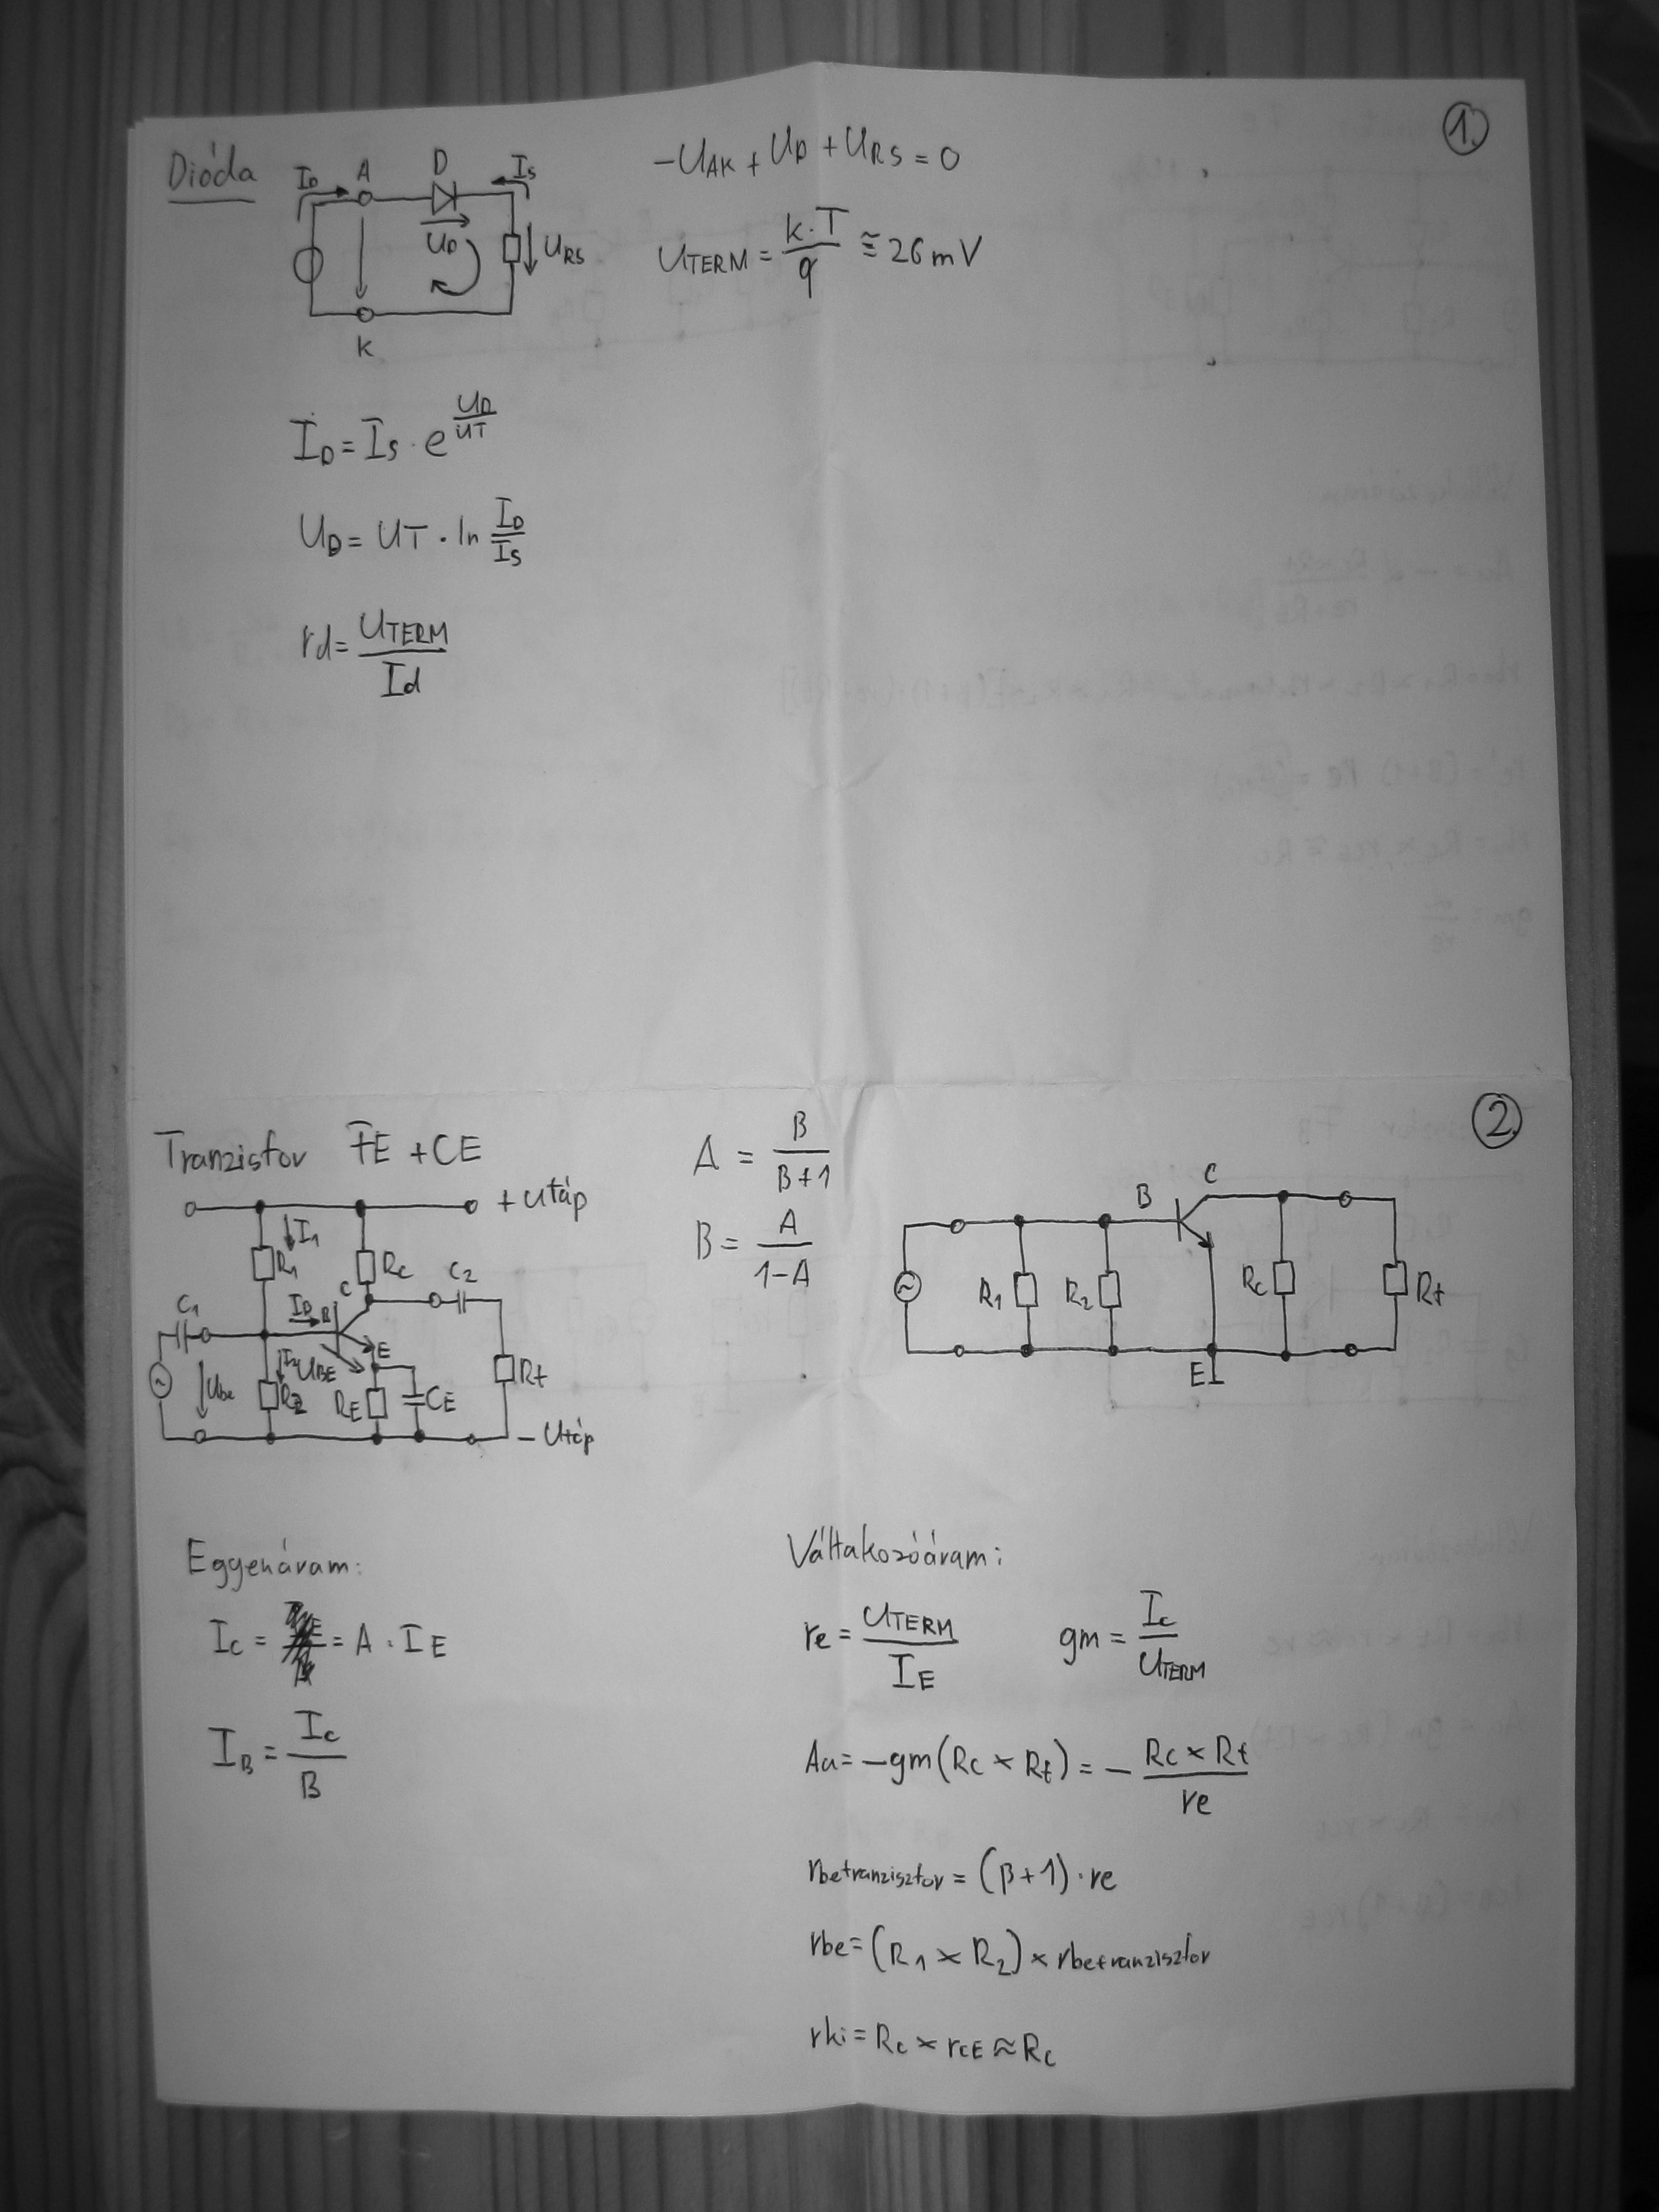 ①
Dióda
I_D A D I_S
U_D U_RS
K
-U_AK + U_D + U_RS = 0
U_TERM = k·T / q ≅ 26mV
I_D = I_S · e^(U_D/UT)
U_D = UT · ln I_D/I_S
rd = U_TERM / Id
②
Tranzistor FE + CE
+ Utáp
I_1
R_1 R_C
C_1 I_B B C C_2
E
Ube I_2 U_BE
R_2 R_E C_E Rt
- Utáp
A = B / B+1
B = A / 1-A
B C
R_1 R_2 R_C Rt
E
Eggyenáram:
I_C = = A · I_E
I_B = I_C / B
Váltakozóáram:
re = U_TERM / I_E gm = I_C / U_TERM
Au = -gm(R_C × R_t) = - R_C × R_t / re
rbetranzisztor = (β+1)·re
rbe = (R_1 × R_2) × rbetranzisztor
rki = R_C × r_CE ≈ R_C